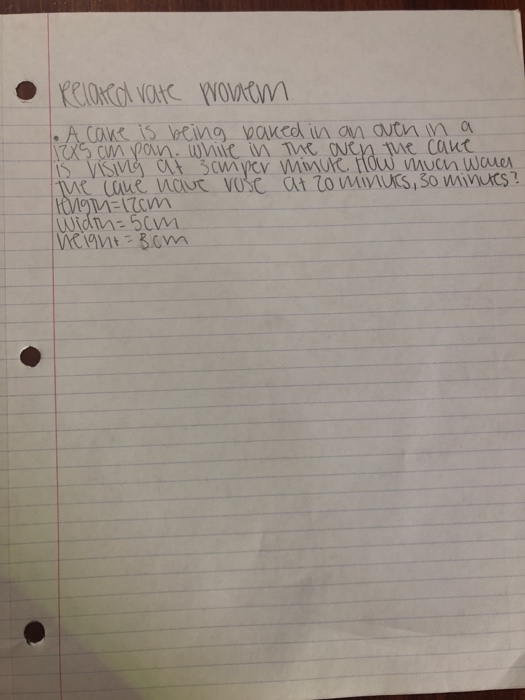 Related rate problem
• A cake is being baked in an oven in a
12x5 cm pan. While in the oven the cake
is rising at 3cm per minute. How much would
the cake have rose at 20 minutes, 30 minutes?
length=12cm
Width=5cm
height=3cm